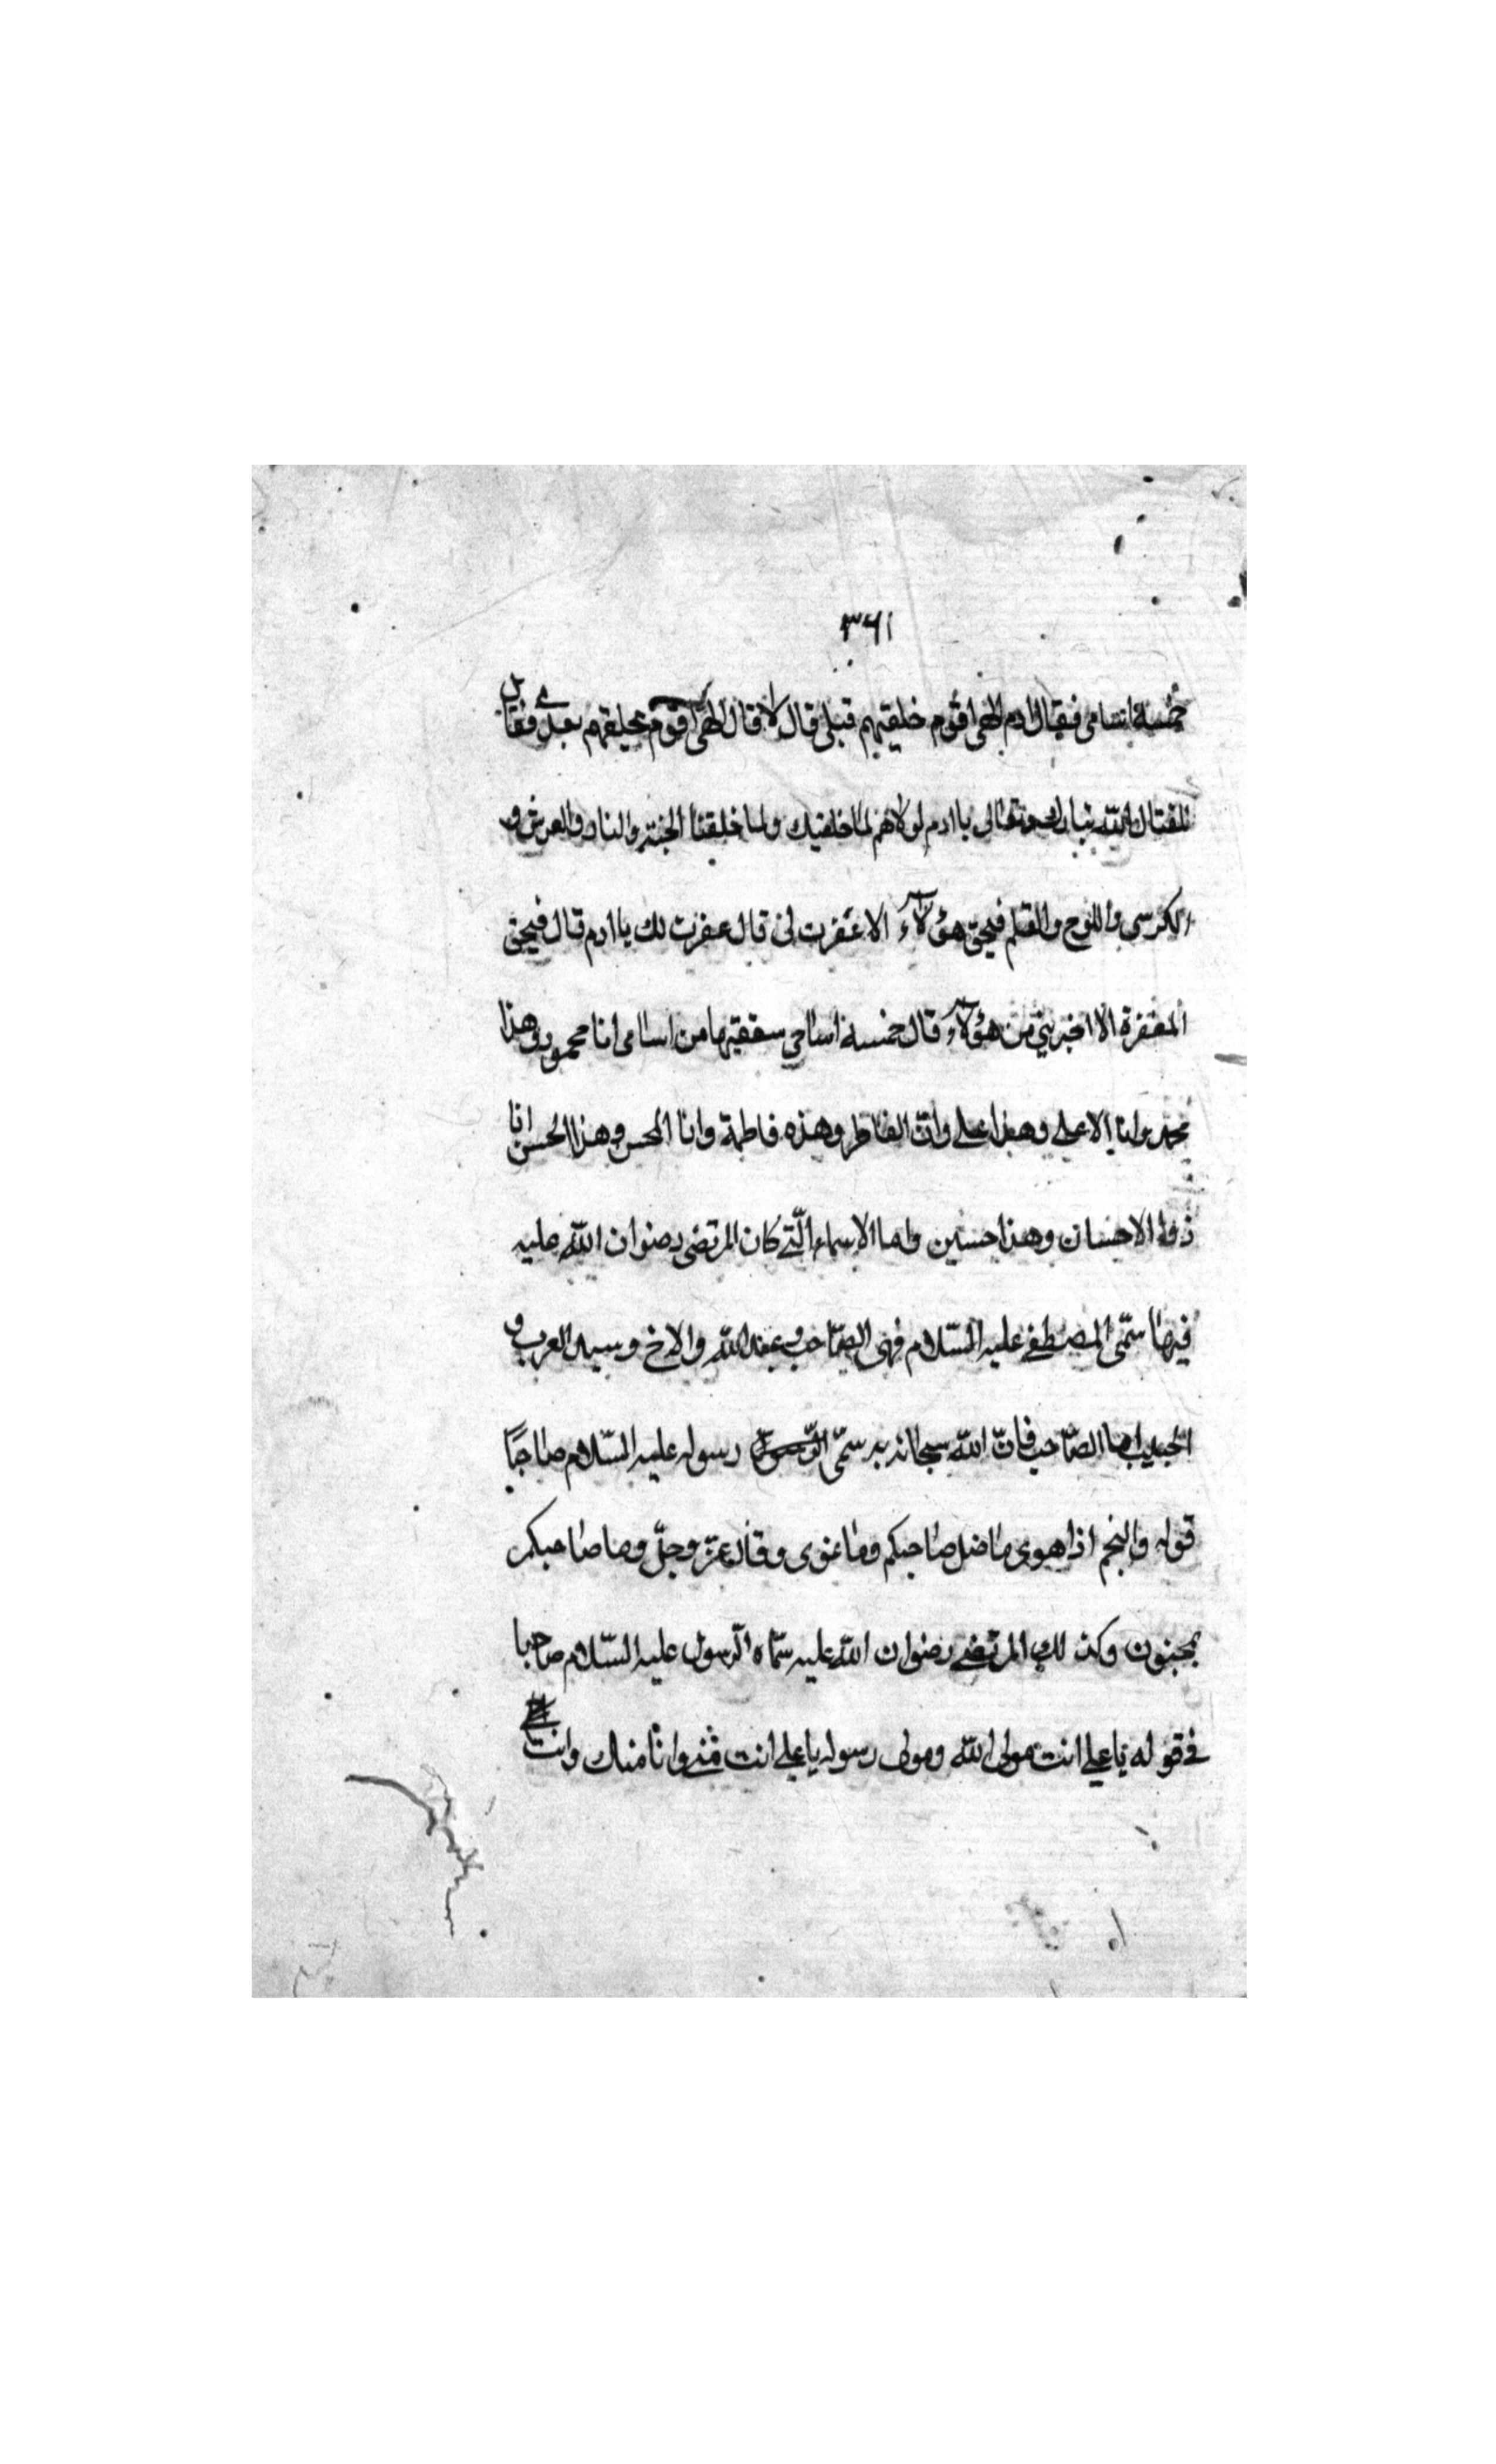 ۳۶۱
خمسة اسامى فقال ادم الهى اقوم خلقتهم قبلى قال لا قال الهى اقوم تخلقهم بعدى فقال
الله تبارك وتعالى يا ادم لولاهم لما خلقتك ولما خلقنا الجنة والنار والعرش و
الكرسى واللوح والقلم فبحق هؤلاء الا غفرت لى قال غفرت لك يا ادم قال فبحق
المغفرة الا اخبرتنى من هؤلاء قال خمسة اسامى شققتها من اسامى انا محمود وهذا
محمد وانا الاعلى وهذا على وانا الفاطر وهذه فاطمة وانا المحسن وهذا الحسن انا
ذو الاحسان وهذا حسين واما الاسماء الّتى كان المرتضى رضوان الله عليه
فيها سمّى المصطفى عليه السّلام فهى الصّاحب وعبد الله والاخ وسيد العرب و
الحبيب اما الصّاحب فانّ الله سبحانه سمّى رسوله عليه السّلام صاحبًا
قوله والنجم اذا هوى ماضل صاحبكم وما غوى وقال عزّ وجلّ وما صاحبكم
بمجنون وكذلك المرتضى رضوان الله عليه سمّاه الرسول عليه السّلام صاحبا
فى قوله يا على انت مولى الله ومولى رسوله يا على انت منى وانا منك وانت